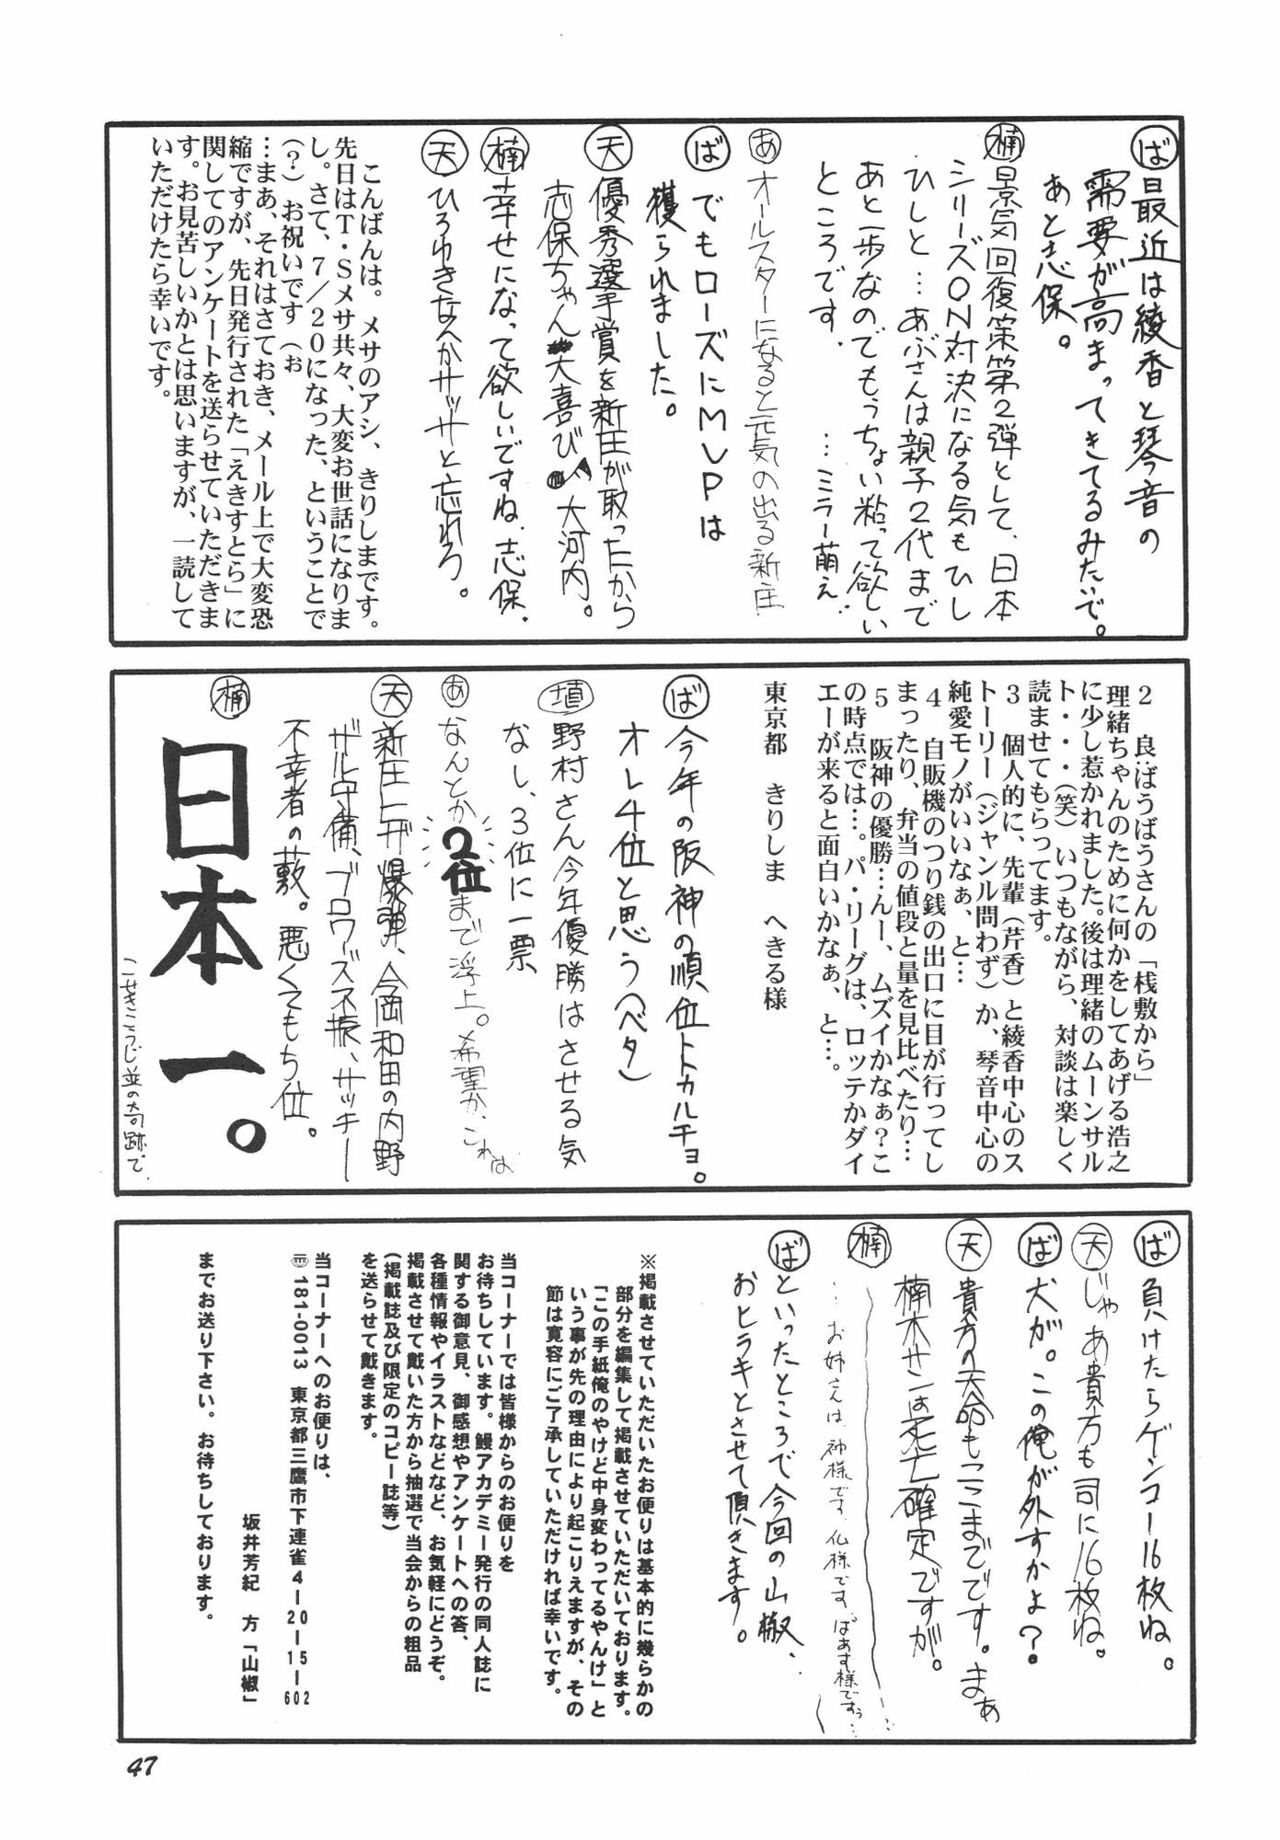 ば 最近は綾香と琴音の
需要が高まってきてるみたいで。
あと志保。
楠 景気回復策第2弾として、日本
シリーズON対決になる気もひし
ひしと…あぶさんは親子2代まで
あと一歩なのでもうちょい粘って欲しい
ところです。 …ミラー萌え‥
あ オールスターになると元気の出る新庄
ば でもローズにMVPは
獲られました。
天 優秀選手賞を新庄が取ったから
志保ちゃん大喜び 大河内。
楠 幸せになって欲しいですね、志保．
天 ひろゆきなんかサッサと忘れろ。
こんばんは。メサのアシ、きりしまです。
先日はT・Sメサ共々、大変お世話になりま
し。さて、7／20になった、ということで
（？）お祝いです（ぉ
…まあ、それはさておき、メール上で大変恐
縮ですが、先日発行された「えきすとら」に
関してのアンケートを送らせていただきま
す。お見苦しいかとは思いますが、一読して
いただけたら幸いです。
2 良:ばうばうさんの「桟敷から」
理緒ちゃんのために何かをしてあげる浩之
に少し惹かれました。後は理緒のムーンサル
ト・・・（笑）いつもながら、対談は楽しく
読ませてもらってます。
3 個人的に、先輩（芹香）と綾香中心のス
トーリー（ジャンル問わず）か、琴音中心の
純愛モノがいいなぁ、と…
4 自販機のつり銭の出口に目が行ってし
まったり、弁当の値段と量を見比べたり…
5 阪神の優勝…んー、ムズイかなぁ？こ
の時点では…。パ・リーグは、ロッテかダイ
エーが来ると面白いかなぁ、と…。
東京都 きりしま へきる様
ば 今年の阪神の順位トトカルチョ。
オレ4位と思う（ベタ）
埴 野村さん今年優勝はさせる気
なし、3位に一票
あ なんとか2位まで浮上。希望か、これは
天 新庄ヒザ爆弾、今岡和田の内野
ザル守備、ブロワーズ不振、サッチー
不幸者の藪。悪くてもち位。
楠 日本一。
（こせきこうじ並の奇跡で．
ば 負けたらゲンコー16枚ね。
天 じゃあ貴方も司に16枚ね。
ば 犬が。この俺が外すかよ？
天 貴方の天命もここまでです。まぁ
楠木サンは死亡確定ですが。
楠 …お姉さんは、神様です、仏様です、ばあす様ですぅ…
ば といったところで今回の山椒、
おヒラキとさせて頂きます。
※掲載させていただいたお便りは基本的に幾らかの
部分を編集して掲載させていただいております。
「この手紙俺のやけど中身変わってるやんけ」と
いう事が先の理由により起こりえますが、その
節は寛容にご了承していただければ幸いです。
当コーナーでは皆様からのお便りを
お待ちしています。鰻アカデミー発行の同人誌に
関する御意見、御感想やアンケートへの答、
各種情報やイラストなどなど、お気軽にどうぞ。
掲載させて戴いた方から抽選で当会からの粗品
（掲載誌及び限定のコピー誌等）
を送らせて戴きます。
当コーナーへのお便りは、
〒181-0013 東京都三鷹市下連雀4－20－15－602
坂井芳紀 方「山椒」
までお送り下さい。お待ちしております。
47